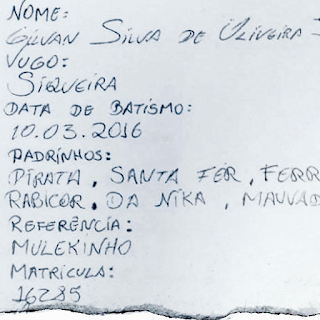 NOME:
GILVAN SILVA DE OLIVEIRA
VUGO:
SIQUEIRA
DATA DE BATISMO:
10.03.2016
PADRINHOS:
PIRATA, SANTA FÉR, FERR
RABICOR, DA NIKA, MAUVAD
REFERÊNCIA:
MULEKINHO
MATRÍCULA:
16285